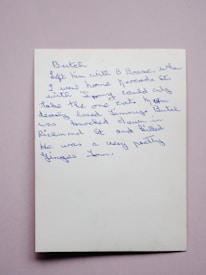 Butch
Left him with B Brase when
I was home
with Timmy I could only
take the one cats Mum
dearly loved Timmy. Butch
was knocked down in
Richmond St and killed
He was a very pretty
Ginger Tom.